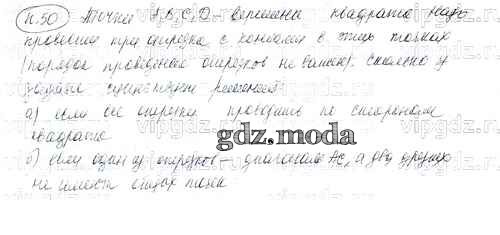 N.50 Точки A,B,C,D вершины квадрата. Надо
провести три отрезка с концами в этих точках
(порядок проведения отрезков не важен). Сколько у
задачи существует решений
а) если все отрезки проводить по сторонам
квадрата
gdz.moda
б) если один из отрезков – диагональ AC, а два других
не имеют общих точек